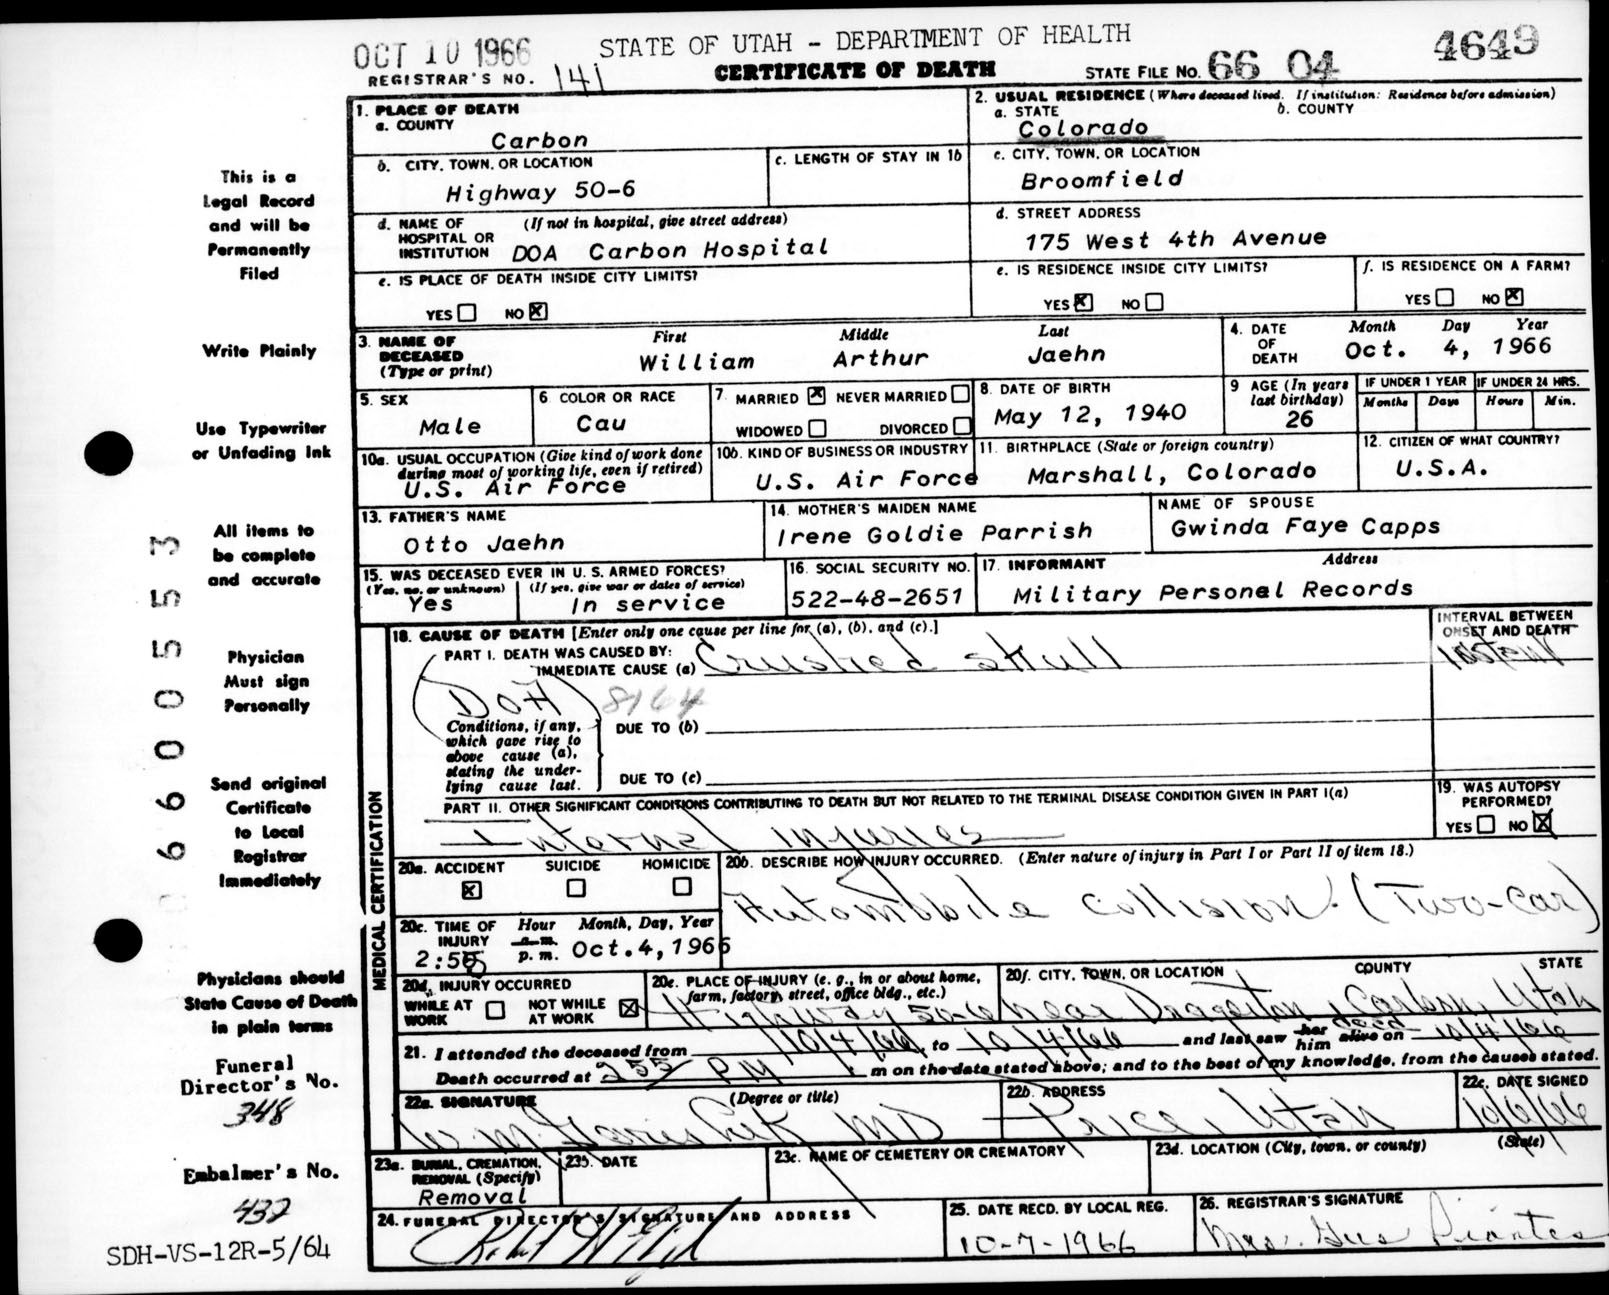 OCT 10 1966
STATE OF UTAH - DEPARTMENT OF HEALTH
4649
REGISTRAR'S NO. 141
CERTIFICATE OF DEATH
STATE FILE NO. 66 04
1. PLACE OF DEATH
a. COUNTY
Carbon
2. USUAL RESIDENCE (Where deceased lived. If institution: Residence before admission)
a. STATE
b. COUNTY
Colorado
b. CITY, TOWN, OR LOCATION
Highway 50-6
c. LENGTH OF STAY IN 1b
c. CITY, TOWN, OR LOCATION
Broomfield
d. NAME OF HOSPITAL OR INSTITUTION
(If not in hospital, give street address)
DOA Carbon Hospital
d. STREET ADDRESS
175 West 4th Avenue
e. IS PLACE OF DEATH INSIDE CITY LIMITS?
YES ☐ NO ☒
e. IS RESIDENCE INSIDE CITY LIMITS?
YES ☒ NO ☐
f. IS RESIDENCE ON A FARM?
YES ☐ NO ☒
3. NAME OF DECEASED
(Type or print)
First Middle Last
William Arthur Jaehn
4. DATE OF DEATH
Month Day Year
Oct. 4, 1966
5. SEX
Male
6. COLOR OR RACE
Cau
7. MARRIED ☒ NEVER MARRIED ☐
WIDOWED ☐ DIVORCED ☐
8. DATE OF BIRTH
May 12, 1940
9 AGE (In years last birthday)
26
IF UNDER 1 YEAR
Months Days
IF UNDER 24 HRS.
Hours Min.
10a. USUAL OCCUPATION (Give kind of work done during most of working life, even if retired)
U.S. Air Force
10b. KIND OF BUSINESS OR INDUSTRY
U.S. Air Force
11. BIRTHPLACE (State or foreign country)
Marshall, Colorado
12. CITIZEN OF WHAT COUNTRY?
U.S.A.
13. FATHER'S NAME
Otto Jaehn
14. MOTHER'S MAIDEN NAME
Irene Goldie Parrish
NAME OF SPOUSE
Gwinda Faye Capps
15. WAS DECEASED EVER IN U. S. ARMED FORCES?
(Yes, no, or unknown) (If yes, give war or dates of service)
Yes In service
16. SOCIAL SECURITY NO.
522-48-2651
17. INFORMANT Address
Military Personel Records
18. CAUSE OF DEATH [Enter only one cause per line for (a), (b), and (c).]
PART I. DEATH WAS CAUSED BY:
IMMEDIATE CAUSE (a) Crushed skull
INTERVAL BETWEEN ONSET AND DEATH
DOA 8164
Conditions, if any, which gave rise to above cause (a), stating the underlying cause last.
DUE TO (b)
DUE TO (c)
PART II. OTHER SIGNIFICANT CONDITIONS CONTRIBUTING TO DEATH BUT NOT RELATED TO THE TERMINAL DISEASE CONDITION GIVEN IN PART I(a)
Internal injuries
19. WAS AUTOPSY PERFORMED?
YES ☐ NO ☒
MEDICAL CERTIFICATION
20a. ACCIDENT SUICIDE HOMICIDE
☒ ☐ ☐
20b. DESCRIBE HOW INJURY OCCURRED. (Enter nature of injury in Part I or Part II of item 18.)
Automobile collision. (Two-car)
20c. TIME OF INJURY
Hour Month, Day, Year
2:55 a.m. p.m. Oct.4, 1966
20d. INJURY OCCURRED
WHILE AT WORK ☐ NOT WHILE AT WORK ☒
20e. PLACE OF INJURY (e. g., in or about home, farm, factory, street, office bldg., etc.)
Highway 50-6
20f. CITY, TOWN, OR LOCATION COUNTY STATE
near Dragerton, Carbon, Utah
21. I attended the deceased from 10/4/66 to 10/4/66 and last saw her him dead alive on 10/4/66
Death occurred at 255 PM m on the date stated above; and to the best of my knowledge, from the causes stated.
22a. SIGNATURE (Degree or title)
W. M. Gorishek MD
22b. ADDRESS
Price, Utah
22c. DATE SIGNED
10/6/66
23a. BURIAL, CREMATION, REMOVAL (Specify)
Removal
23b. DATE
23c. NAME OF CEMETERY OR CREMATORY
23d. LOCATION (City, town, or county) (State)
24. FUNERAL DIRECTOR'S SIGNATURE AND ADDRESS
25. DATE RECD. BY LOCAL REG.
10-7-1966
26. REGISTRAR'S SIGNATURE
Mrs. Gus
This is a
Legal Record
and will be
Permanently
Filed
Write Plainly
Use Typewriter
or Unfading Ink
All items to
be complete
and accurate
Physician
Must sign
Personally
Send original
Certificate
to Local
Registrar
Immediately
Physicians should
State Cause of Death
in plain terms
Funeral
Director's No.
348
Embalmer's No.
432
SDH-VS-12R-5/64
06600553